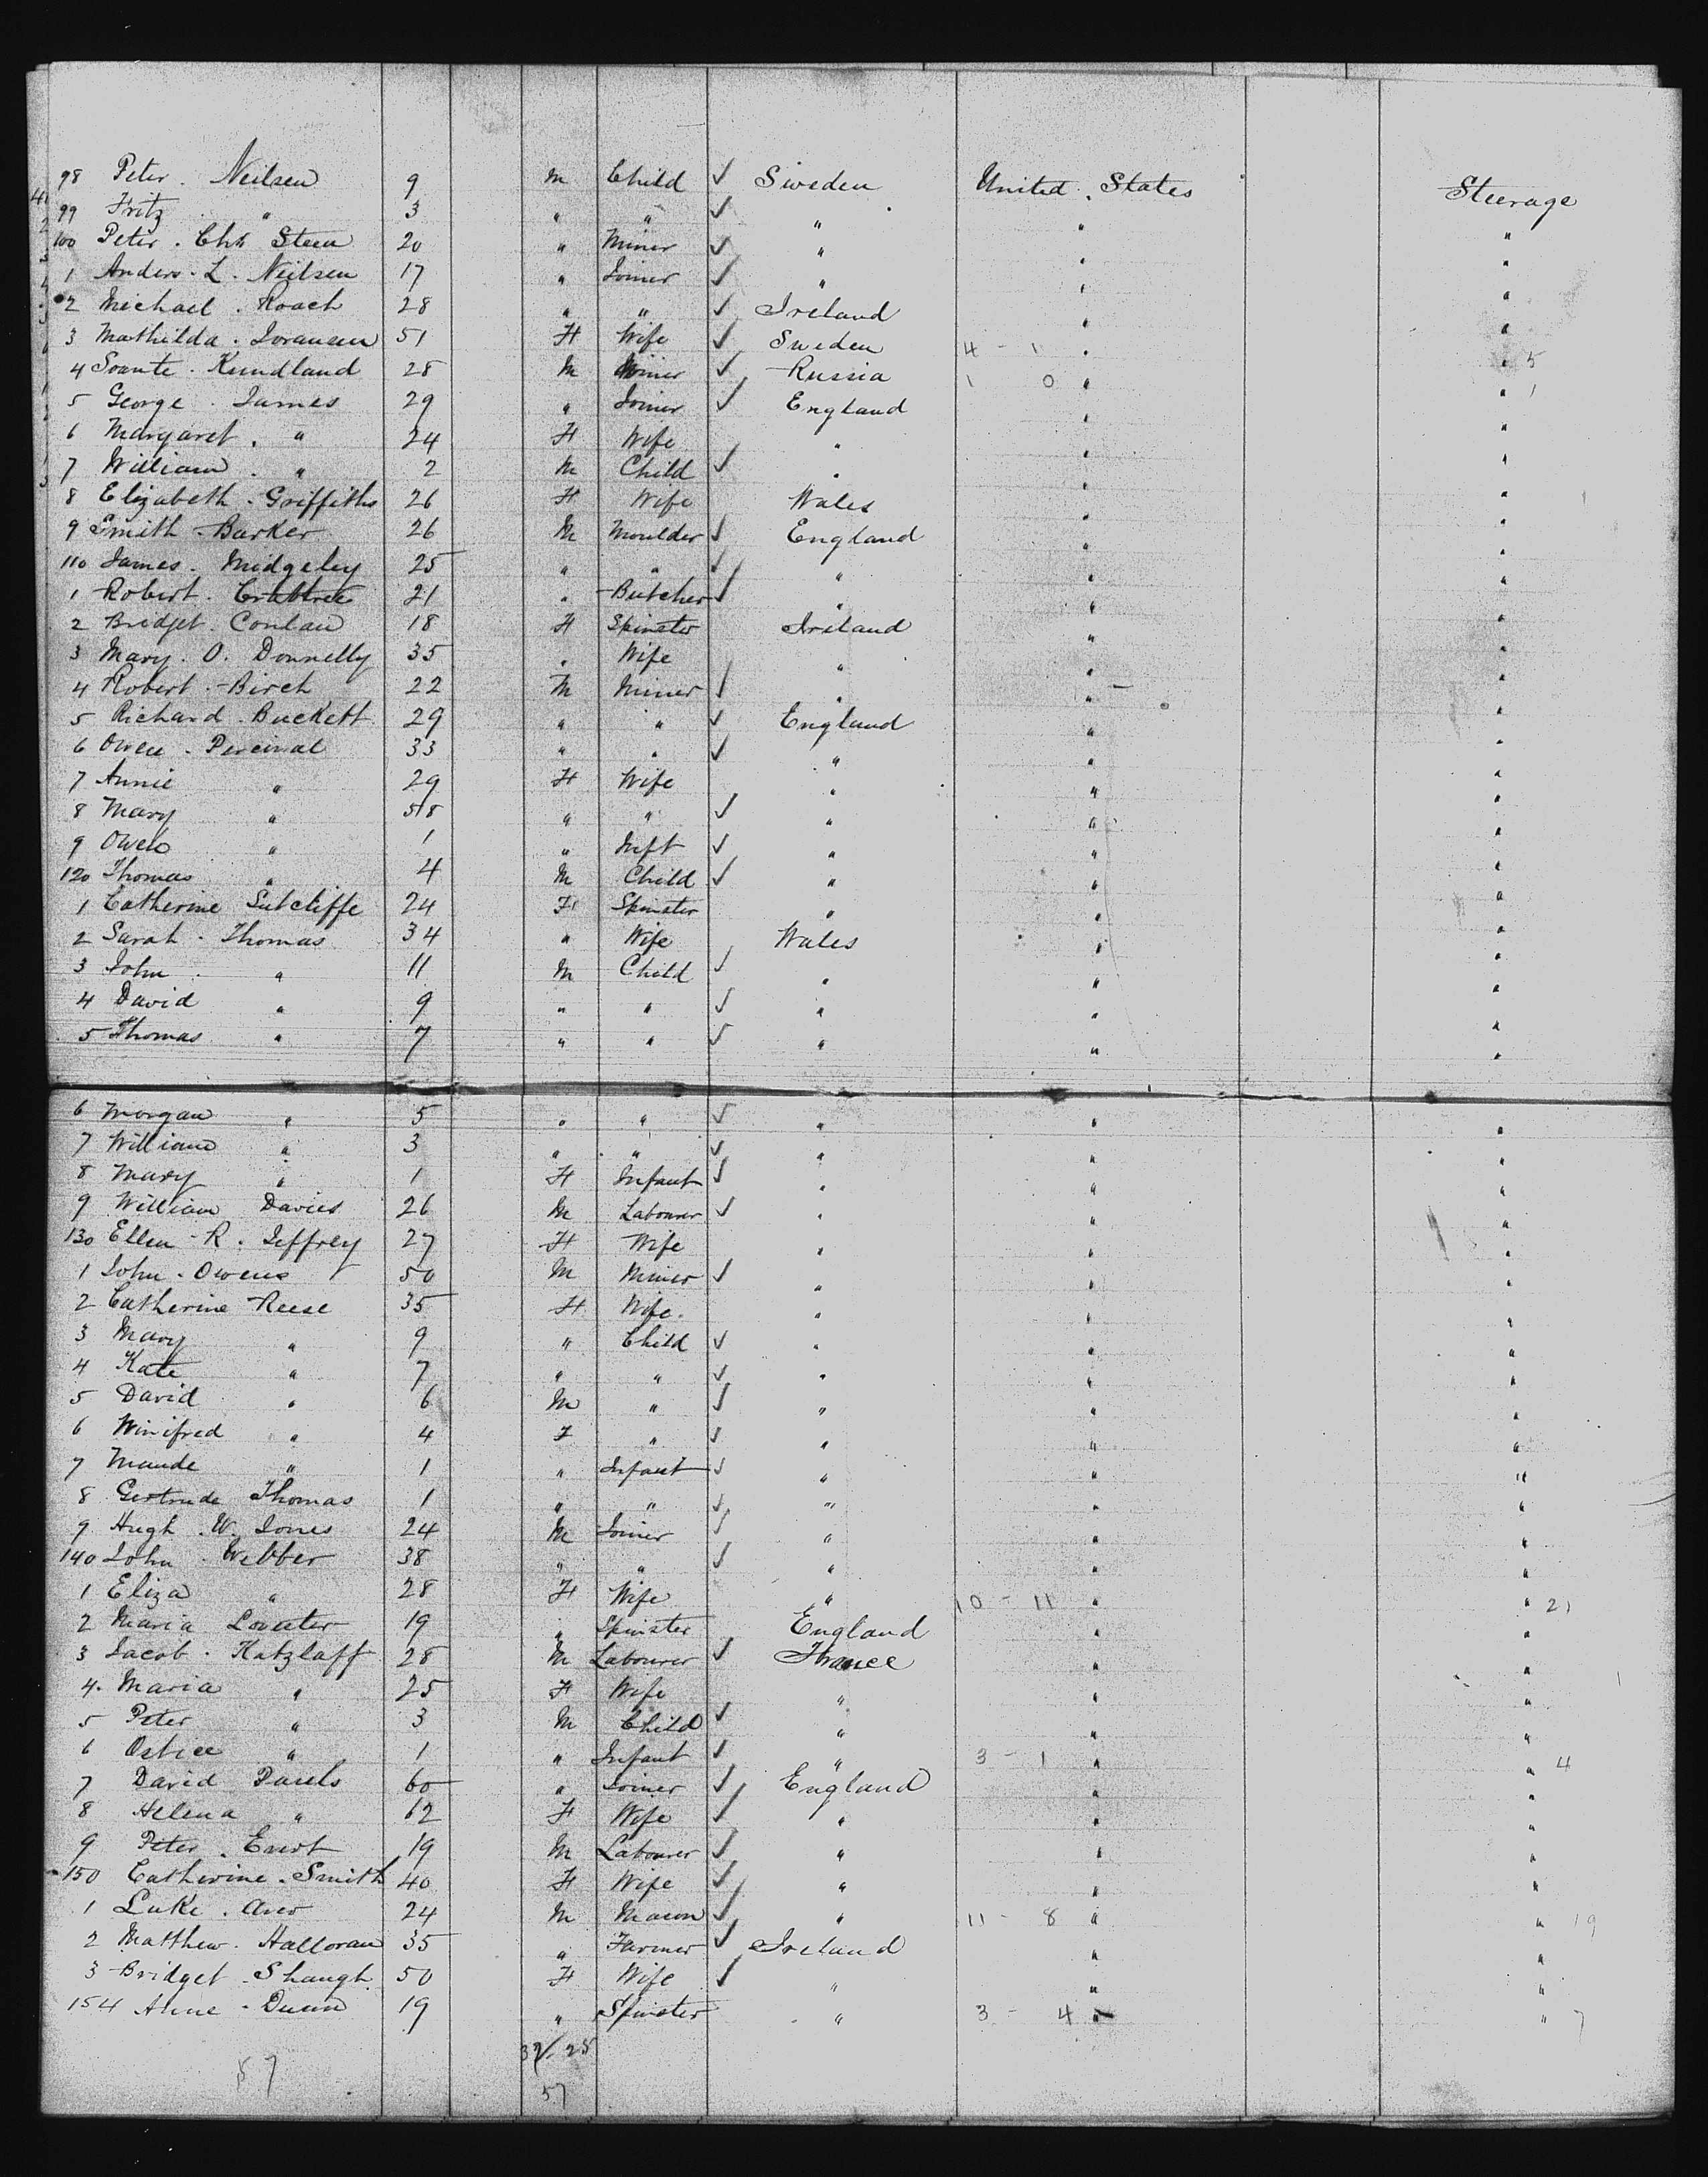 98 Peter . Neilsen 9 M Child ✓ Sweden United . States Steerage
99 Fritz . " 3 " " ✓ " " "
100 Peter . Chr Steen 20 " Miner ✓ " " "
1 Anders . L . Neilsen 17 " Joiner ✓ " " "
2 Michael . Roach 28 " " ✓ Ireland " "
3 Mathilda . 51 F Wife ✓ Sweden 4 - 1 " " 5
4 Soante . Kundland 28 M Miner ✓ Russia 1 0 " " 1
5 George . James 29 " Joiner ✓ England " "
6 Margaret . " 24 F Wife " " "
7 William . " 2 M Child ✓ " " "
8 Elizabeth . Griffiths 26 F Wife Wales " "
9 Smith - Barker 26 M Moulder ✓ England " "
110 James . Midgeley 25 " " ✓ " " "
1 Robert . Crabtree 21 " Butcher ✓ " " "
2 Bridget . Conlan 18 F Spinster Ireland " "
3 Mary . O . Donnelly 35 " Wife " " "
4 Robert . Birch 22 M Miner ✓ " " "
5 Richard . Buckett 29 " " ✓ England " "
6 Owen . Percival 33 " " ✓ " " "
7 Annie " 29 F Wife " " "
8 Mary " 58 " " ✓ " " "
9 Owen " 1 " Inft ✓ " " "
120 Thomas " 4 M Child ✓ " " "
1 Catherine Sutcliffe 24 F Spinster " " "
2 Sarah . Thomas 34 " Wife Wales " "
3 John . " 11 M Child ✓ " " "
4 David " 9 " " ✓ " " "
5 Thomas " 7 " " ✓ " " "
6 Morgan " 5 " " ✓ " " "
7 William " 3 " " ✓ " " "
8 Mary " 1 F Infant ✓ " " "
9 William Davies 26 M Labourer ✓ " " "
130 Ellen - R . Jeffrey 27 F Wife " " "
1 John . Owens 50 M Miner ✓ " " "
2 Catherine Reese 35 F Wife . " " "
3 Mary " 9 " Child ✓ " " "
4 Kate " 7 " " ✓ " " "
5 David " 6 M " ✓ " " "
6 Winifred " 4 F " ✓ " " "
7 Maude " 1 " Infant ✓ " " "
8 Gertrude Thomas 1 " " ✓ " " "
9 Hugh . W . Jones 24 M Joiner ✓ " " "
140 John . Webber 38 " " ✓ " " "
1 Eliza " 28 F Wife " 10 - 11 " " 21
2 Maria Lovater 19 " Spinster England " "
3 Jacob . Katzlaff 28 M Labourer ✓ France " "
4 . Maria " 25 F Wife " " "
5 Peter " 3 M Child ✓ " " "
6 " 1 " Infant ✓ " 3 - 1 " " 4
7 David 60 " Joiner ✓ England " "
8 Helena " 62 F Wife ✓ " " "
9 Peter . 19 M Labourer ✓ " " "
150 Catherine . Smith 40 F Wife ✓ " " "
1 Luke . 24 M Mason ✓ " 11 - 8 " " 19
2 Matthew . Halloran 35 " Farmer ✓ Ireland " "
3 Bridget . Shaugh 50 F Wife ✓ " " "
154 Anne - Dunn 19 " Spinster " 3 - 4 " " 7
32/25
57
57